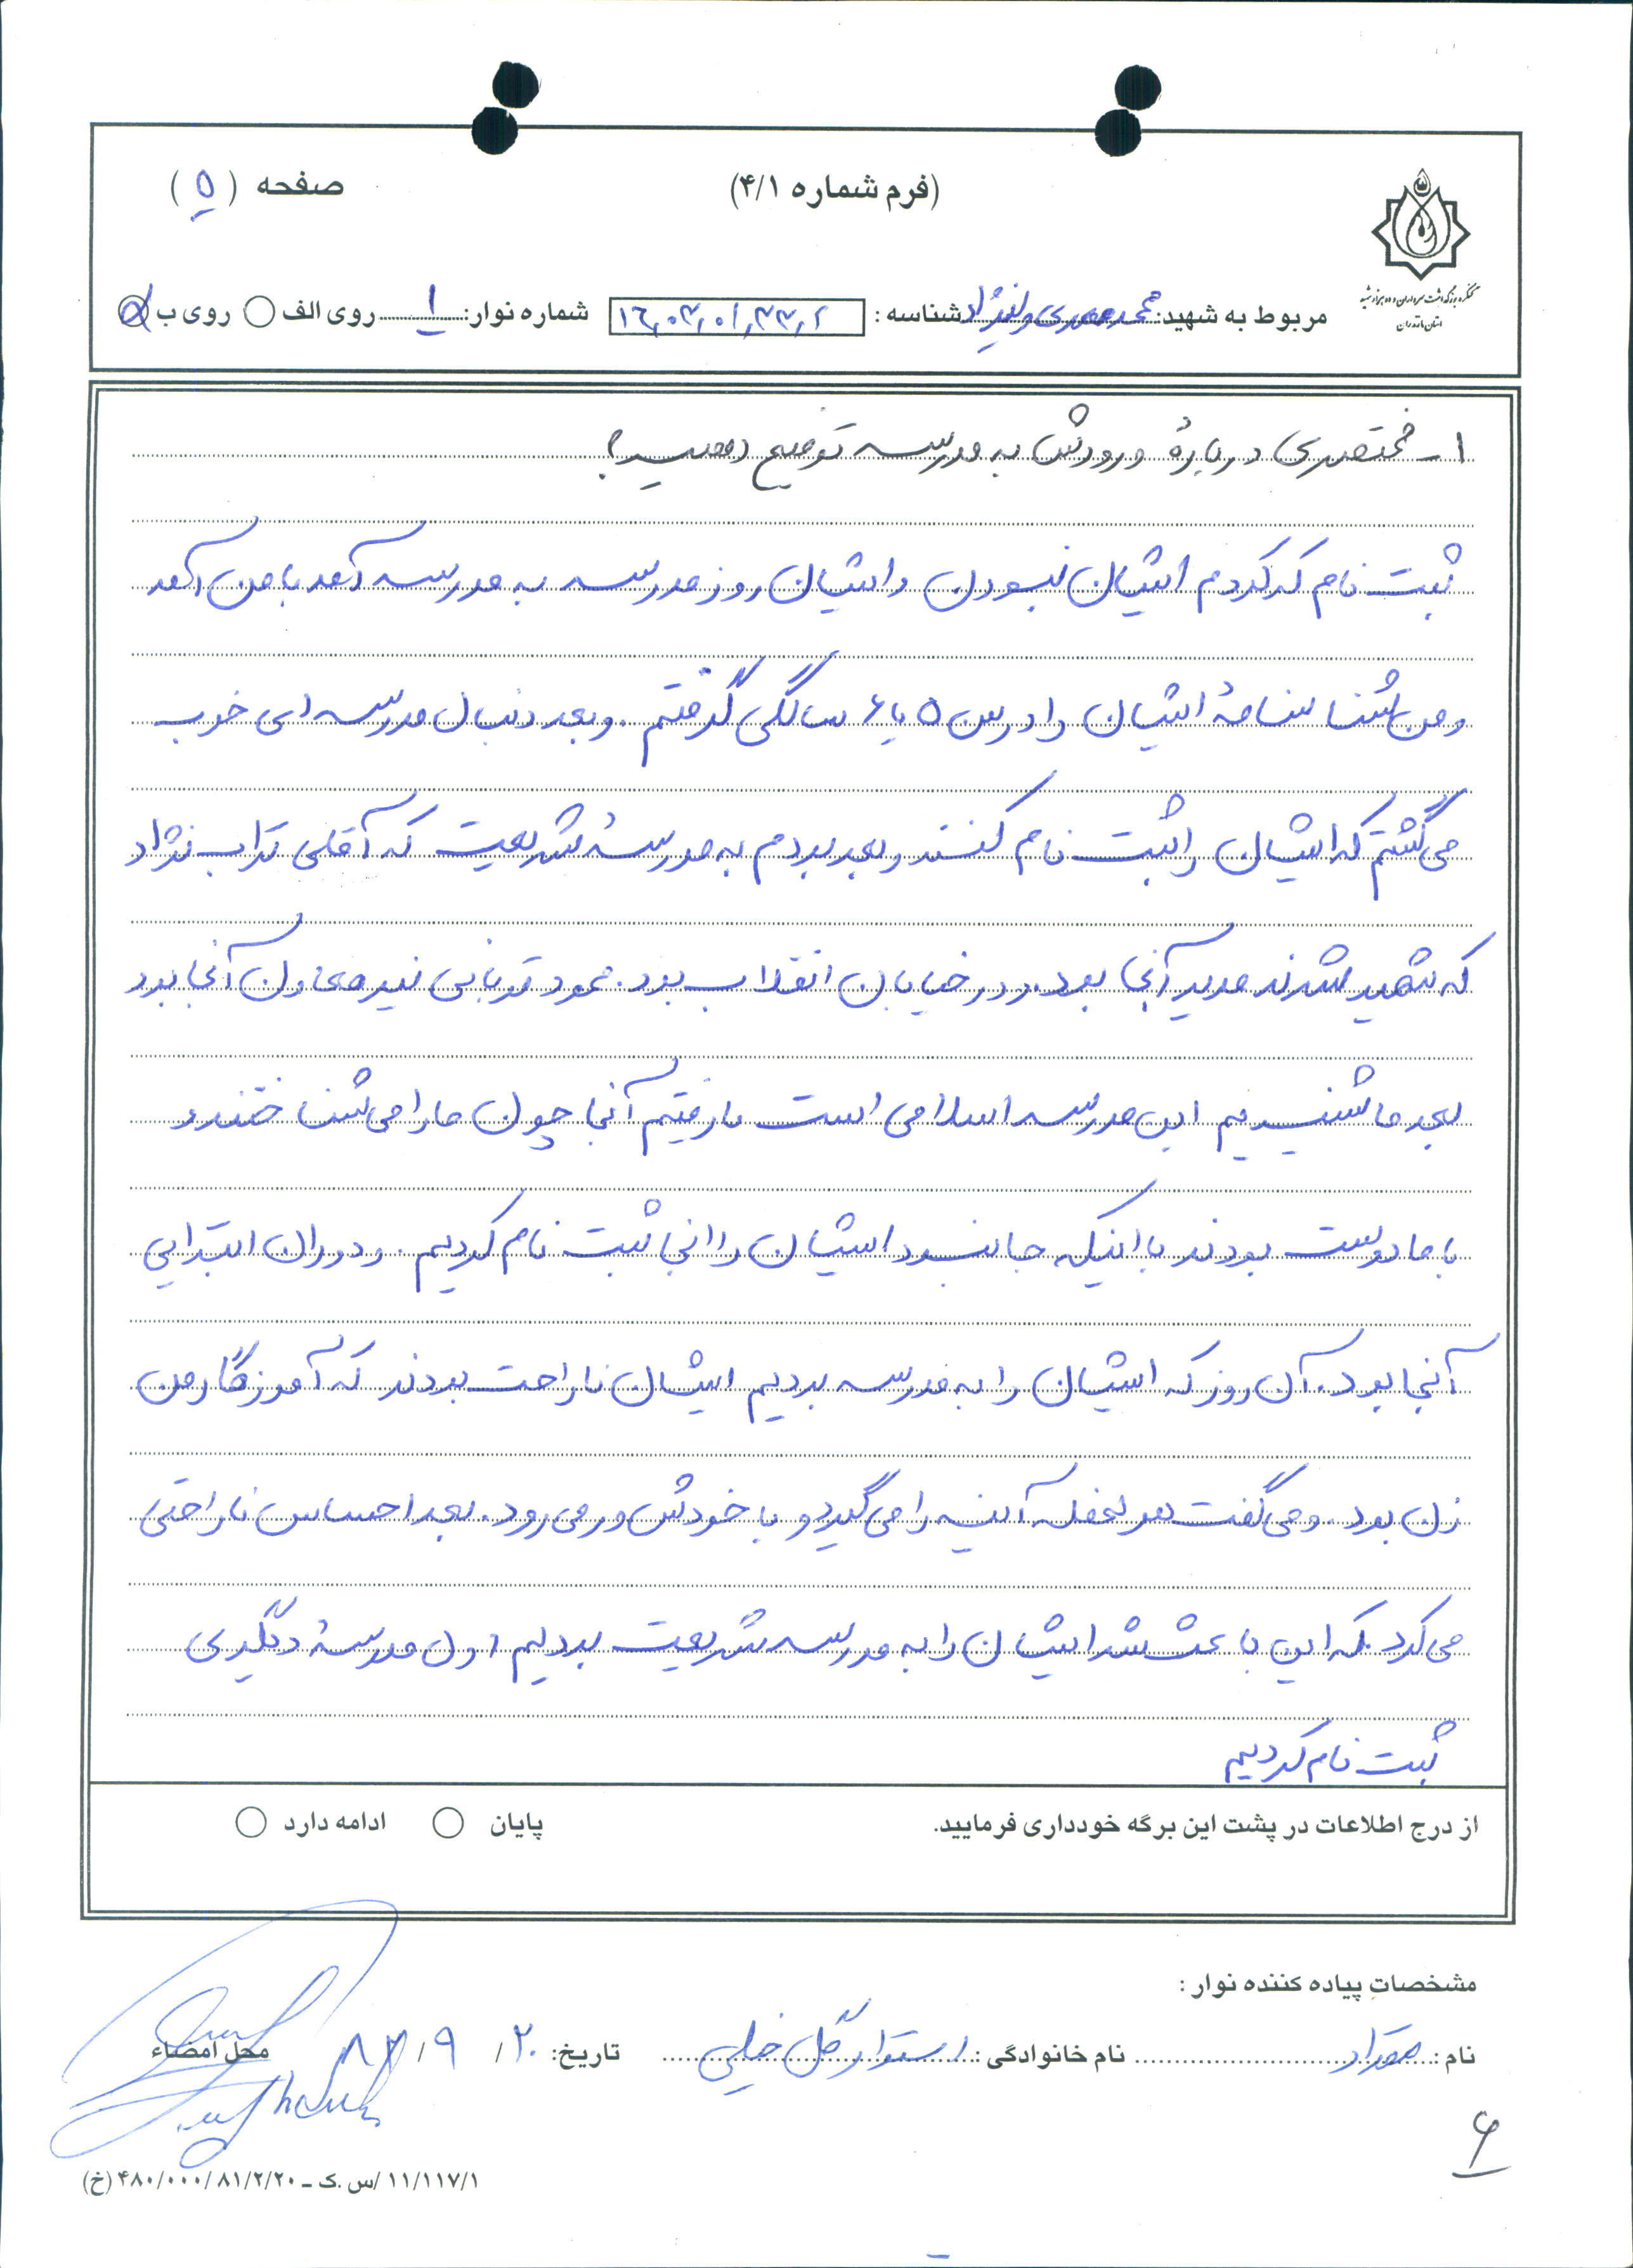 (فرم شماره ۴/۱)
صفحه (۵)
کنگره بزرگداشت سرداران و ده هزار شهید
استان مازندران
مربوط به شهید: محمدمهدی شناسه: شماره نوار: ۱ روی الف روی ب
۱- مختصری درباره ورودش به مدرسه توضیح دهید؟
ثبت نام که کردم ایشان نبودن و ایشان روز مدرسه به مدرسه آمد با من آمد
و من شناسنامهٔ ایشان را در سن ۵ یا ۶ سالگی گرفتم. و بعد دنبال مدرسه ای خوب
می گشتم که ایشان را ثبت نام کنند و بعد بردم به مدرسهٔ شریعت که آقای تراب نژاد
که شهید شدند مدیر آنجا بود. و در خیابان انقلاب بود. محمود نیز معاون آنجا بود
بعد ما شنیدیم این مدرسه اسلامی است ما رفتیم آنجا چون ما را می شناختند و
با ما دوست بودند با اینکه جا نبود ایشان را انجا ثبت نام کردیم. و دوران ابتدایی
آنجا بود. آن روز که ایشان را به مدرسه بردیم ایشان ناراحت بودند که آموزگار من
زن بود. و می گفت هر لحظه آینه را می گیرد و با خودش ور می رود. بعد احساس ناراحتی
می کرد که این باعث شد ایشان را به مدرسه شریعت بردیم اول مدرسهٔ دیگری
ثبت نام کردیم
از درج اطلاعات در پشت این برگه خودداری فرمایید. پایان ادامه دارد
مشخصات پیاده کننده نوار :
نام : مقداد نام خانوادگی : استوار تاریخ: ۲۰ / ۹ / ۸۲ محل امضاء
۶
۱۱/۱۱۷/۱ /س.ک – ۴۸۰/۰۰۰/۸۱/۲/۲۰ (خ)